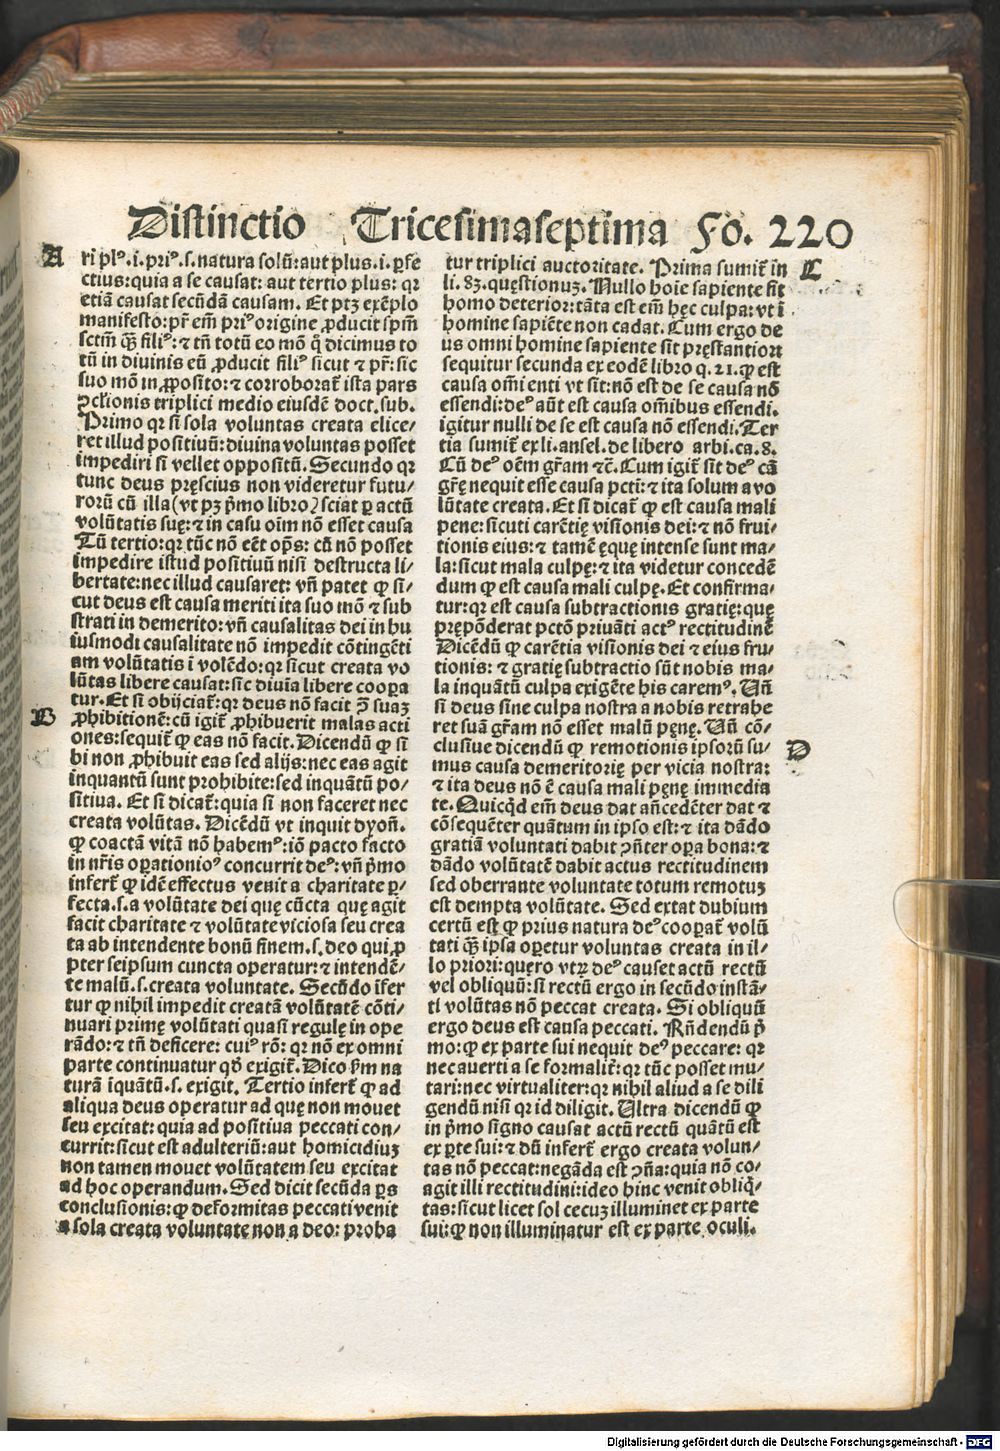 Distinctio Tricesimaseptima Fo. 220
A
ri plꝰ.i.priꝰ.s.natura solũ:aut plus.i.ꝑfe
ctius:quia a se causat: aut tertio plus: qꝛ
etiã causat secũdã causam. Et ptꝫ exẽplo
manifesto:pr̃ em̃ priꝰ origine ꝓducit spm̃
sctm̃ qꝫ̃ filiꝰ:⁊ tñ totũ eo mõ q̇ dicimus to
tũ in diuinis eũ ꝓducit filiꝰ sicut ⁊ pr̃:sic
suo mõ in ꝓposito:⁊ corroborat̃ ista pars
ꝯclionis triplici medio eiusdẽ doct.sub.
Primo qꝛ si sola voluntas creata elice/
ret illud positiuũ:diuina voluntas posset
impediri si vellet oppositũ. Secundo qꝛ
tunc deus pręscius non videretur futu/
rorũ cũ illa(vt pꝫ p̃mo libro)sciat ꝑ actũ
volũtatis suę:⁊ in casu oĩm nõ esset causa
Tũ tertio:qꝛ tũc nõ eẽt op̃s: cũ nõ posset
impedire istud positiuũ nisi destructa li/
bertate:nec illud causaret: vñ patet ꝙ si/
cut deus est causa meriti ita suo mõ ⁊ sub
strati in demerito:vñ causalitas dei in hu
iusmodi causalitate nõ impedit cõtingẽti
am volũtatis ĩ volẽdo:qꝛ sicut creata vo
lũtas libere causat:sic diuĩa libere cooꝑa
tur. Et si obijciat̃:qꝛ deus nõ facit ꝯ̃ suaꝫ
B
ꝓhibitionẽ:cũ igit̃ ꝓhibuerit malas acti
ones:sequit̃ ꝙ eas nõ facit. Dicendũ ꝙ si
bi non ꝓhibuit eas sed alijs:nec eas agit
inquantũ sunt prohibite:sed inquãtũ po/
sitiua. Et si dicat̃:quia si non faceret nec
creata volũtas. Dicẽdũ vt inquit dyoñ.
ꝙ coactã vitã nõ habemꝰ:iõ pacto facto
in nr̃is oꝑationioꝰ concurrit deꝰ: vñ p̃mo
infert̃ ꝙ idẽ effectus venit a charitate ꝑ/
fecta.s.a volũtate dei quę cũcta quę agit
facit charitate ⁊ volũtate viciosa seu crea
ta ab intendente bonũ finem.s.deo qui ꝓ
pter seipsum cuncta operatur:⁊ intendẽ/
te malũ.s.creata voluntate. Secũdo ĩfer
tur ꝙ nihil impedit creatã volũtatẽ cõti/
nuari primę volũtati quasi regulę in ope
rãdo:⁊ tñ deficere: cuiꝰ rõ: qꝛ nõ ex omni
parte continuatur qd̓ exigit̃. Dico ẜm na
turã ĩquãtũ.s. exigit. Tertio infert̃ ꝙ ad
aliqua deus operatur ad quę non mouet
seu excitat: quia ad positiua peccati con/
currit:sicut est adulteriũ:aut homicidiuꝫ
non tamen mouet volũtatem seu excitat
ad hoc operandum. Sed dicit secũda ꝑs
conclusionis:ꝙ deformitas peccati venit
a sola creata voluntate non a deo: proba
tur triplici auctoritate. Prima sumit̃ in
C
li.83.quęstionuꝫ. Nullo hoie sapiente fit
homo deterior:tãta est em̃ hęc culpa:vt ĩ
homine sapiẽte non cadat. Cum ergo de
us omni homine sapiente sit pręstantior:
sequitur secunda ex eodẽ libro q.21.ꝙ est
causa om̃i enti vt sit:nõ est de se causa nõ
essendi:deꝰ aũt est causa om̃ibus essendi.
igitur nulli de se est causa nõ essendi. Ter
tia sumit̃ ex li.ansel.de libero arbi.ca.8.
Cũ deꝰ oẽm gr̃am ⁊c̃. Cum igit̃ sit deꝰ cã
gr̃ę nequit esse causa pcti:⁊ ita solum a vo
lũtate creata. Et si dicat̃ ꝙ est causa mali
pene:sicuti carẽtię visionis dei:⁊ nõ frui/
tionis eius:⁊ tamẽ ęque intense sunt ma/
la:sicut mala culpę:⁊ ita videtur concedẽ
dum ꝙ est causa mali culpę. Et confirma/
tur:qꝛ est causa subtractionis gratię:quę
prępõderat pctõ priuãti actꝰ rectitudinẽ
Dicẽdũ ꝙ carẽtia visionis dei ⁊ eius fru/
tionis: ⁊ gratię subtractio sũt nobis ma/
la inquãtũ culpa exigẽte his caremꝰ. Uñ
si deus sine culpa nostra a nobis retrahe
ret suã gr̃am nõ esset malũ pęnę. Uñ cõ/
clusiue dicendũ ꝙ remotionis ipsorũ su/
D
mus causa demeritorię per vicia nostra:
⁊ ita deus nõ ẽ causa mali pęnę immedia
te. Quicq̇d em̃ deus dat añcedẽter dat ⁊
cõsequẽter quãtum in ipso est:⁊ ita dãdo
gratiã voluntati dabit ꝯñter oꝑa bona:⁊
dãdo volũtatẽ dabit actus rectitudinem
sed oberrante voluntate totum remotuꝫ
est dempta volũtate. Sed extat dubium
certũ est ꝙ prius natura deꝰ cooꝑat̃ volũ
tati qꝫ̃ ipsa oꝑetur voluntas creata in il/
lo priori:quęro vtꝝ deꝰ causet actũ rectũ
vel obliquũ:si rectũ ergo in secũdo instã/
ti volũtas nõ peccat creata. Si obliquũ
ergo deus est causa peccati. Rñdendũ p̃
mo:ꝙ ex parte sui nequit deꝰ peccare: qꝛ
nec auerti a se formalit̃: qꝛ tũc posset mu/
tari:nec virtualiter:qꝛ nihil aliud a se dili
gendũ nisi qꝛ id diligit. Ultra dicendũ ꝙ
in p̃mo signo causat actũ rectũ quãtũ est
ex ꝑte sui:⁊ dũ infert̃ ergo creata volun/
tas nõ peccat:negãda est ꝯñа:quia nõ co/
agit illi rectitudini:ideo hinc venit obliq̇/
tas:sicut licet sol cecuꝫ illuminet ex parte
sui:ꝙ non illuminatur est ex parte oculi.
Digitalisierung gefördert durch die Deutsche Forschungsgemeinschaft - DFG